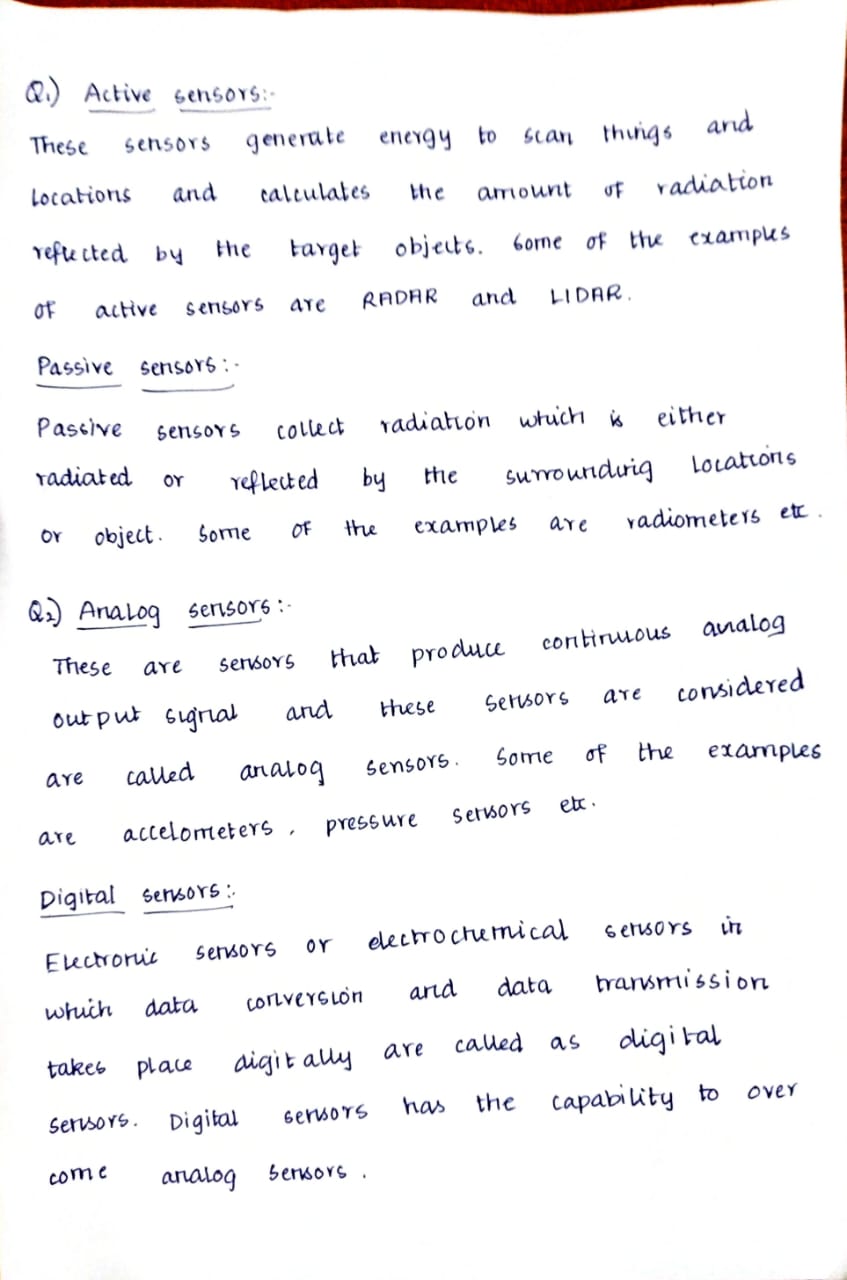 Q1) Active sensors:-
These sensors generate energy to scan things and
locations and calculates the amount of radiation
reflected by the target objects. Some of the examples
of active sensors are RADAR and LIDAR.
Passive sensors:-
Passive sensors collect radiation which is either
radiated or reflected by the surrounding locations
or object. Some of the examples are radiometers etc.
Q2) Analog sensors:-
These are sensors that produce continuous analog
output signal and these sensors are considered
are called analog sensors. Some of the examples
are accelometers, pressure sensors etc.
Digital sensors:-
Electronic sensors or electrochemical sensors in
which data conversion and data transmission
takes place digitally are called as digital
sensors. Digital sensors has the capability to over
come analog sensors.